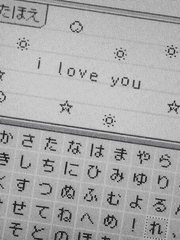 たほえ
i love you
か さ た な は ま や ら
き し ち に ひ み ゆ り
く す つ ぬ ふ む よ る
せ て ね へ め ! れ
そ と の ほ